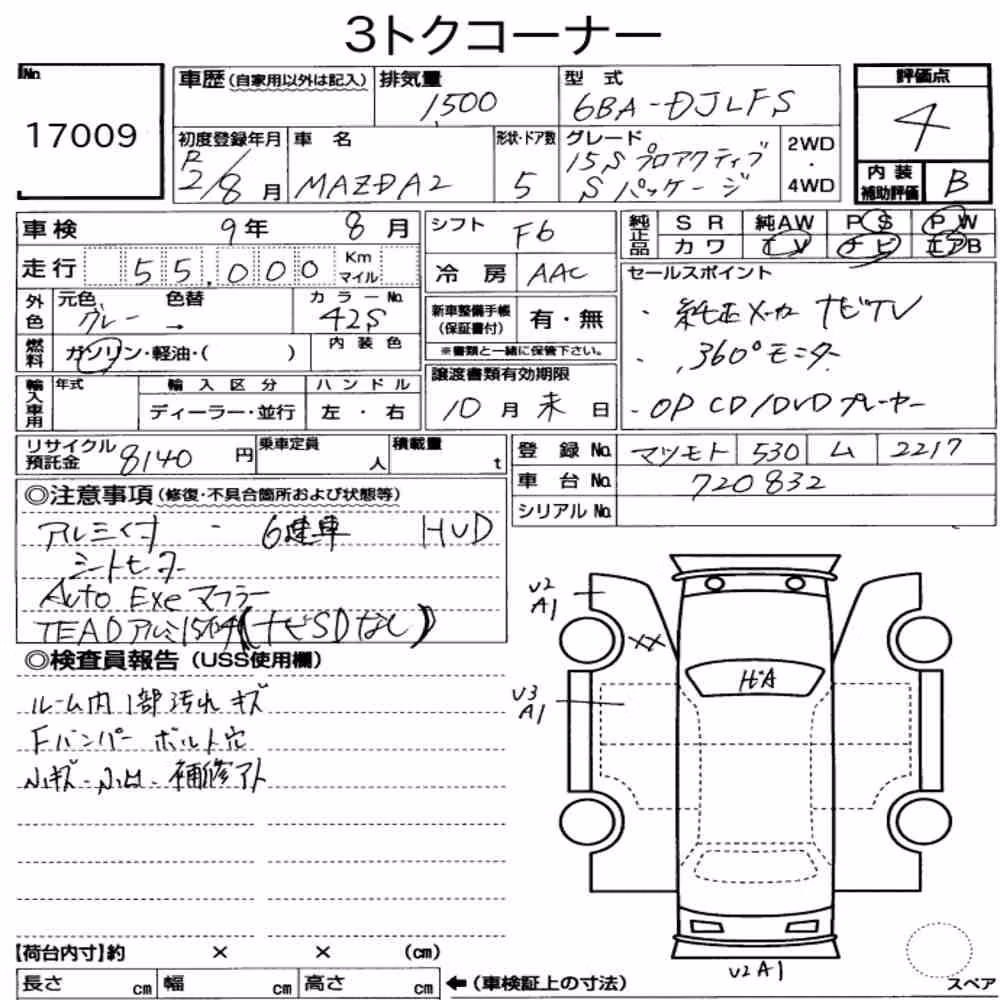 3トクコーナー
No.
17009
車歴 (自家用以外は記入) 排気量 1500
型式 6BA-DJLFS
評価点 4
初度登録年月 R 2/8月
車名 MAZDA2
形状・ドア数 5
グレード 15S プロアクティブ
S パッケージ
2WD
・
4WD
内装
補助評価 B
車検 9年 8月
シフト F6
純正品 SR 純AW PS PW
カワ TV ナビ エアB
走行 55,000 Km
マイル
冷房 AAC
セールスポイント
・純正メーカー ナビTV
・360°モニター
・OP CD/DVDプレーヤー
外色 元色 グレー 色替 → カラーNo. 42S
新車整備手帳
(保証書付) 有・無
※書類と一緒に保管下さい。
燃料 ガソリン・軽油・( ) 内装色
輸入車用 年式 輸入区分 ハンドル
ディーラー・並行 左・右
譲渡書類有効期限
10月末日
リサイクル
預託金 8140円 乗車定員 人 積載量 t
登録No. マツモト 530 ム 2217
車台No. 720832
シリアルNo.
◎注意事項 (修復・不具合箇所および状態等)
6速車 HUD
シートヒーター
Auto Exe マフラー
TEADアルミ15 (ナビSDなし)
◎検査員報告 (USS使用欄)
ルーム内1部汚れ キズ
Fバンパー ボルト穴
小キズ・小凹・補修アト
U2
A1
XX
U3
A1
ヒA
U2A1
【荷台内寸】約 × × (cm)
長さ cm 幅 cm 高さ cm ←(車検証上の寸法)
スペア